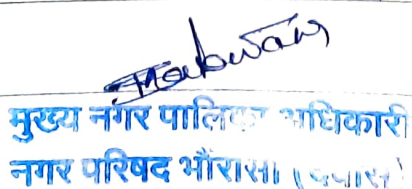 मुख्य नगर पालिका अधिकारी
नगर परिषद भौंरासा (देवास)